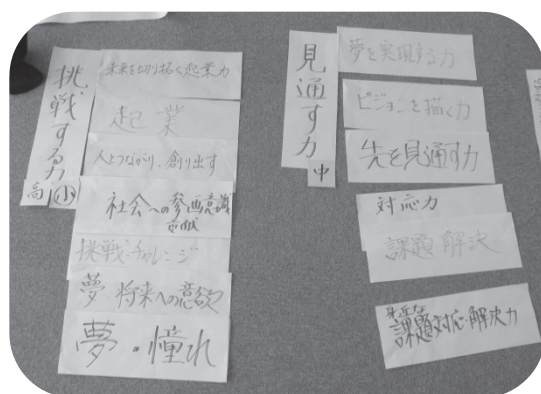 挑戦する力
高 小
未来を切り拓く起業力
起業
人とつながり、創り出す
社会への参画意識
貢献
挑戦・チャレンジ
夢 将来への意欲
夢・憧れ
見通す力
中
夢を実現する力
ビジョンを描く力
先を見通す力
対応力
課題解決
身近な
課題対応・解決力